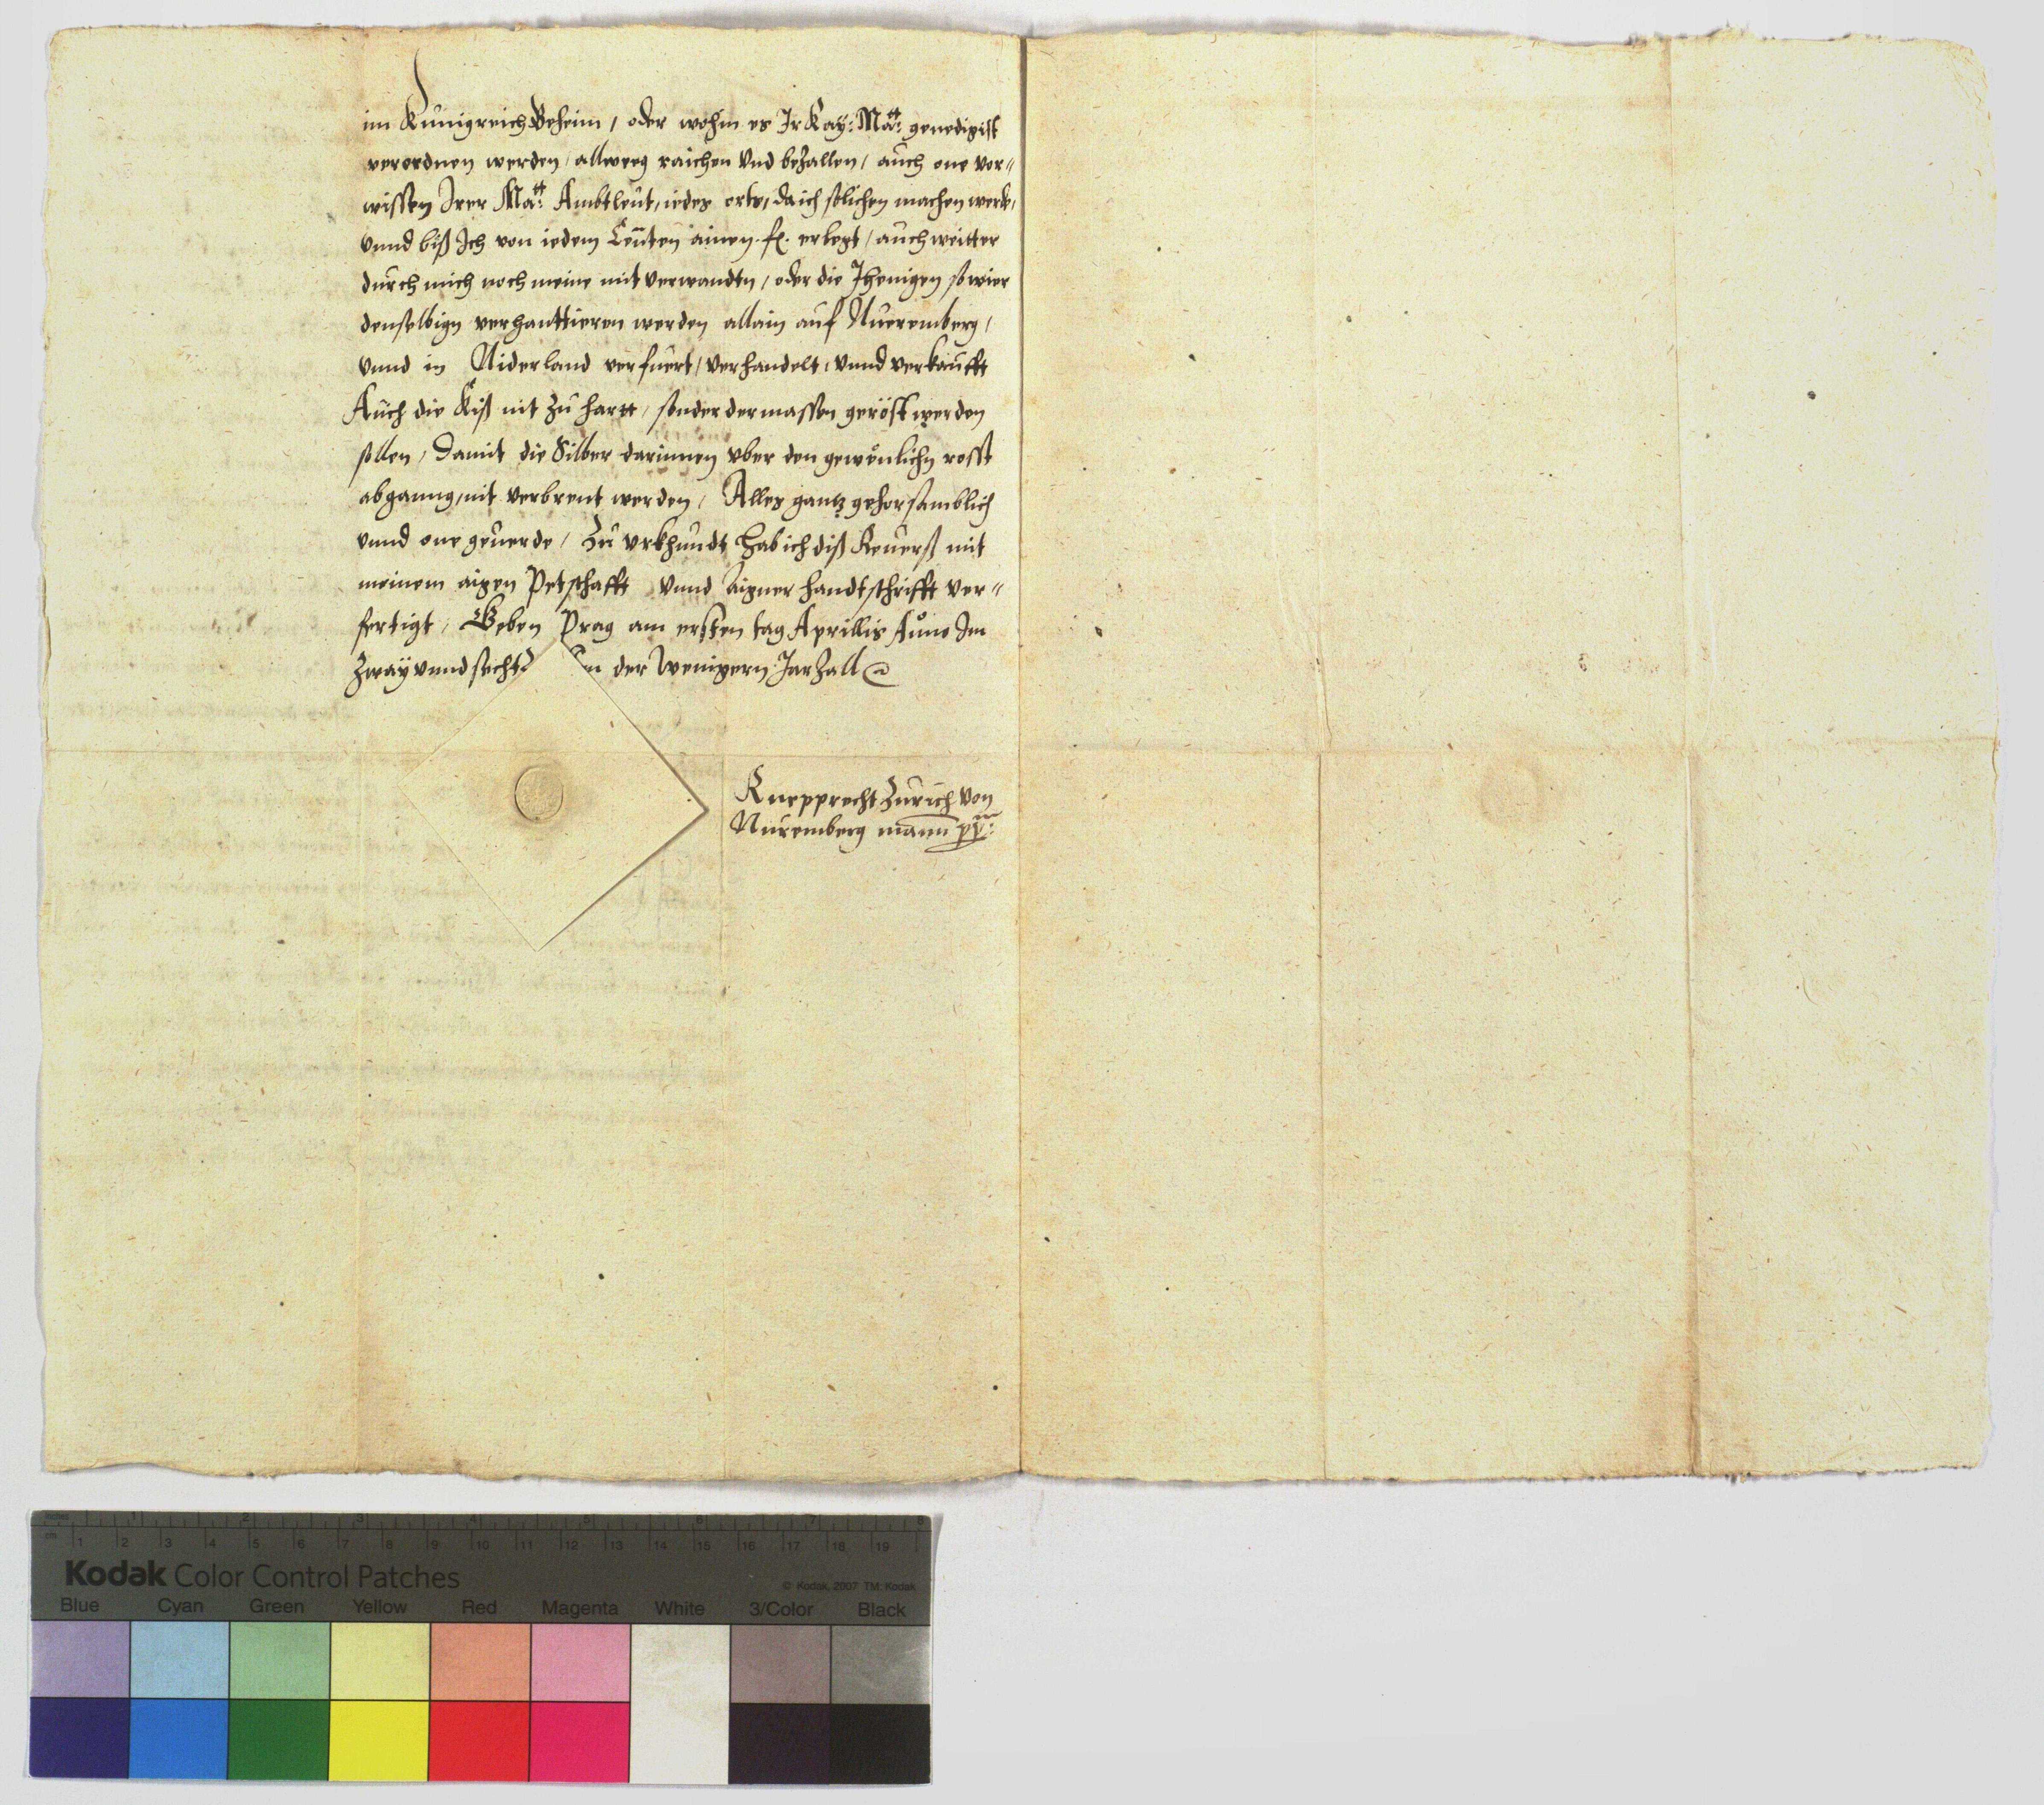 im Künigreich Beheim, oder wohin es Ir Kay: Matt: genedigist
verordnen werden, allweeg raichen vnd bezallen, auch one vor-
wissen Irer Matt: Ambtleüt, iedes orts, da ich solichen machen werde,
vnnd biß Ich von iedem Centen ainen. fl. erlegt, auch weitter
durch mich noch meine mit verwandtn, oder die Jhenigen so wier
denselbign verhanttieren werden allain auf Nueremberg,
vnnd in Niderland verfuert, verhandelt, vnnd verkaufft
Auch die Kiß nit zu hartt, sonder dermassen geröst werden
sollen, damit die Silber darinnen vber den gewenlichn rosst
abganng, nit verbrent werden, Alles gantz gehorsamblich
vnnd one geuerde, Zu vrkhundt hab ich diß Reuerß mit
meinem aigen Petschafft vnnd Aigner handtschrifft ver-
fertigt, Geben Prag am ersten tag Aprillis Anno Im
zway vnnd sechtz in der wenigern Jarzall
Ruepprecht Zurich von
Nuremberg mann pp:
Kodak Color Control Patches
© Kodak, 2007 TM: Kodak
inches 1 2 3 4 5 6 7 8
cm 1 2 3 4 5 6 7 8 9 10 11 12 13 14 15 16 17 18 19
Blue Cyan Green Yellow Red Magenta White 3/Color Black